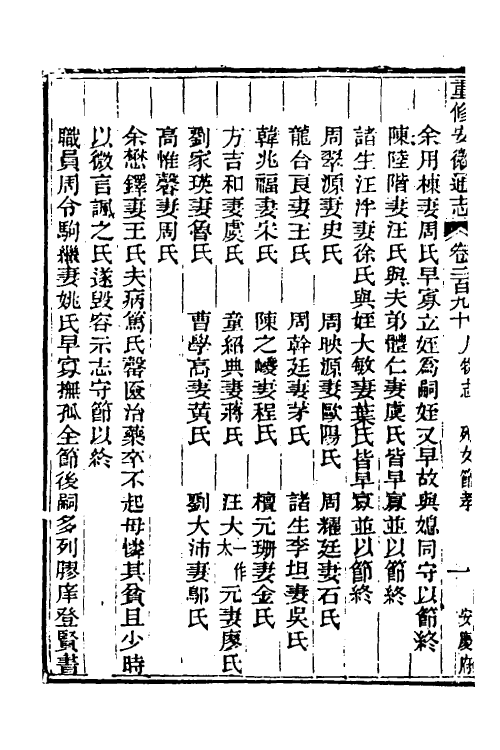 重修安徽通志 卷二百九十 人物志 列女節孝 一 安慶府
余用棟妻周氏早寡立姪爲嗣姪又早故與媳同守以節終
陳陸階妻汪氏與夫弟體仁妻虞氏皆早寡並以節終
諸生汪泮妻徐氏與姪大敏妻葉氏皆早寡並以節終
周翠源妻史氏 周映源妻歐陽氏 周耀廷妻石氏
龍台良妻王氏 周幹廷妻茅氏 諸生李坦妻吳氏
韓兆福妻宋氏 陳之崚妻程氏 檀元珊妻金氏
方吉和妻虞氏 童紹典妻蔣氏 汪大一作太元妻廖氏
劉家瑛妻魯氏 曹學高妻黃氏 劉大沛妻鄔氏
高惟馨妻周氏
余懋鐸妻王氏夫病篤氏罄匳治藥卒不起母憐其貧且少時
以微言諷之氏遂毀容示志守節以終
職員周令駒繼妻姚氏早寡撫孤全節後嗣多列膠庠登賢書